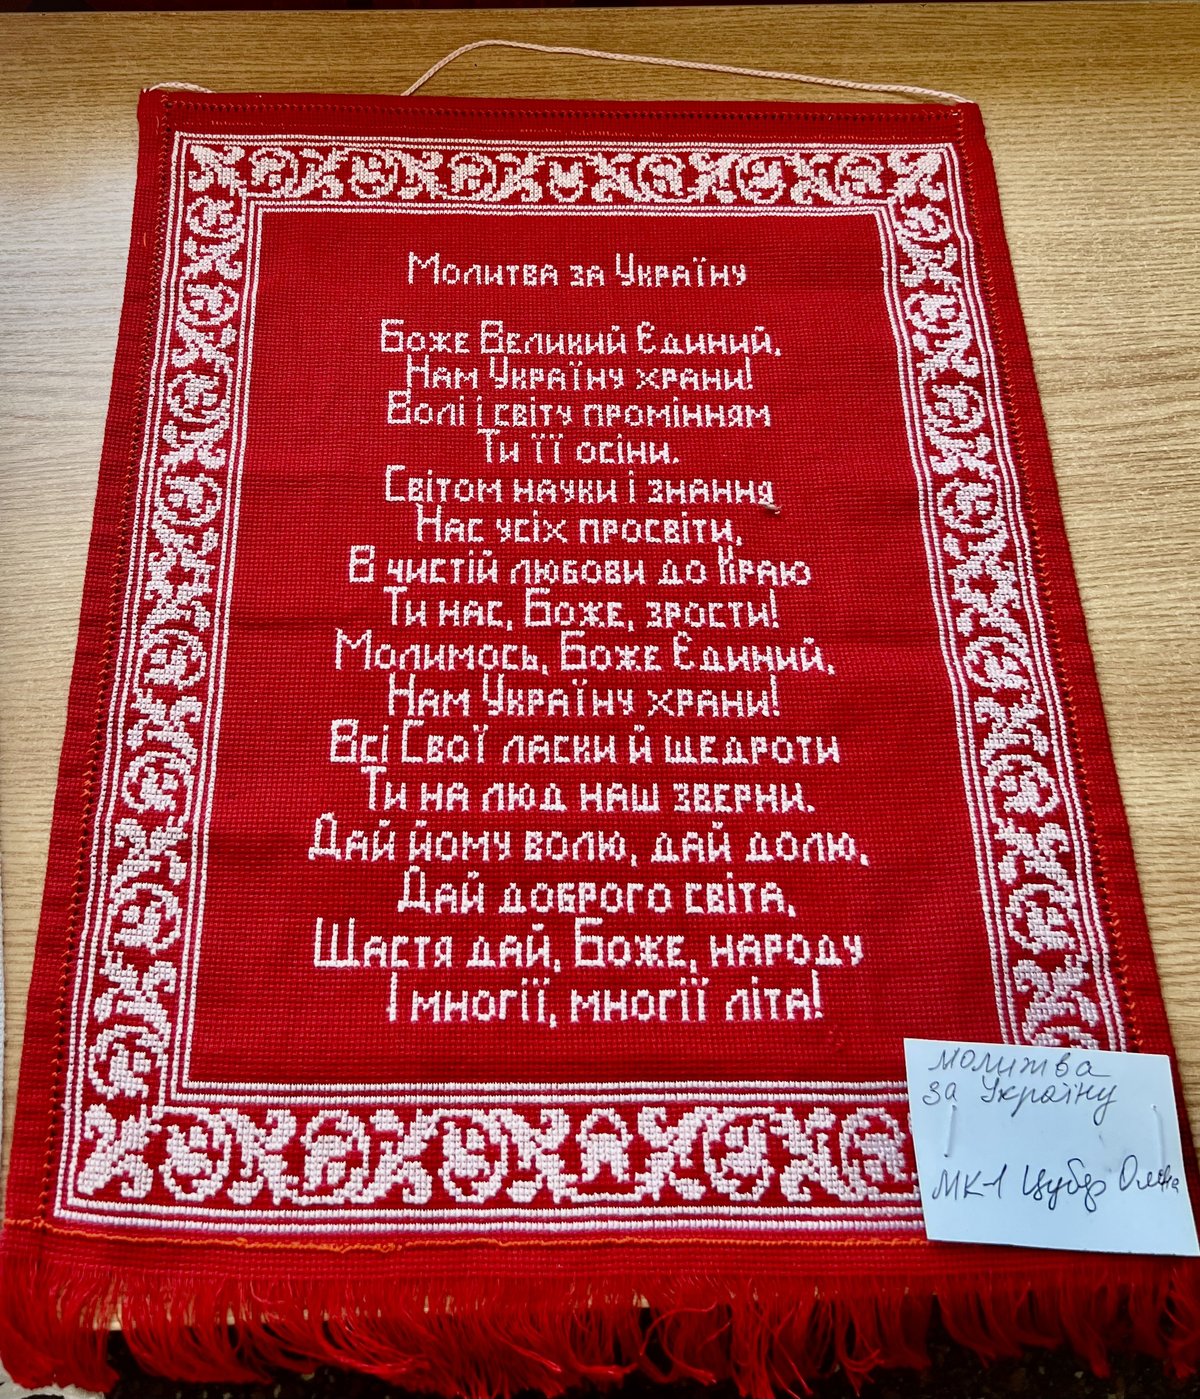 Молитва за Україну
Боже Великий Єдиний,
Нам Україну храни!
Волі і світу промінням
Ти її осіни.
Світом науки і знання
Нас усіх просвіти,
В чистій любови до Краю
Ти нас, Боже, зрости!
Молимось, Боже Єдиний,
Нам Україну храни!
Всі Свої ласки й щедроти
Ти на люд наш зверни.
Дай йому волю, дай долю,
Дай доброго світа,
Щастя дай, Боже, народу
І многії, многії літа!
Молитва
за Україну
МК-1 Олена